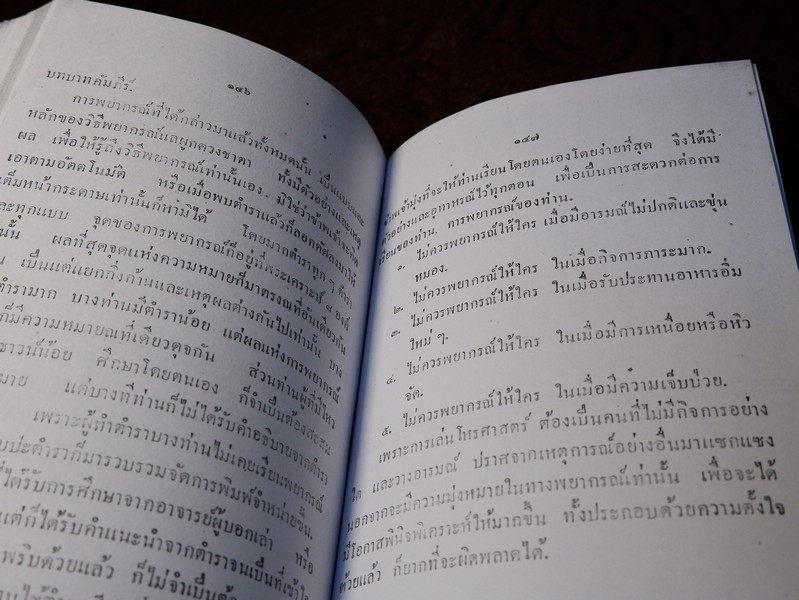 บทบาทคัมภีร์.
๑๔๖
การพยากรณ์ที่ได้กล่าวมาแล้วทั้งหมดนั้น เป็นแบบและ
หลักของวิธีพยากรณ์แลผูกดวงชาตา ทั้งมีตัวอย่างและเหตุ
ผล เพื่อให้รู้ถึงวิธีพยากรณ์เท่านั้นเอง มิใช่ว่าข้าพเจ้าจะคิด
เอาตามอัตตโนมัติ หรือเมื่อพบตำราแล้วก็ลอกคัดลงมาให้
เต็มหน้ากระดาษเท่านั้นก็หามิได้ โดยมากตำราทุก ๆ ตำรา
และทุกแบบ จุดของการพยากรณ์ก็อยู่ที่พระเคราะห์ ๘ องค์
นั้น ผลที่สุดจุดแห่งความหมายก็มาตรงณที่อันเดียวกัน
เป็นแต่แยกกิ่งก้านและเหตุผลต่างกันไปเท่านั้น บาง
ตำรามาก บางท่านมีตำราน้อย แต่ผลแห่งการพยากรณ์
ก็มีความหมายณที่เดียวดุจกัน ส่วนท่านผู้ที่มีไหว
ชาวน์น้อย ศึกษาโดยตนเอง ก็จำเป็นต้องสะสม
แต่บางทีท่านก็ไม่ได้รับคำอธิบายจากตำรา
เพราะผู้ทำตำราบางท่านไม่เคยเรียนพยากรณ์
ตำราก็มารวบรวมจัดการพิมพ์จำหน่ายขึ้น.
ได้รับการศึกษาจากอาจารย์ผู้บอกเล่า หรือ
แต่ก็ได้รับคำแนะนำจากตำราจนเป็นที่เข้าใจ
ด้วยแล้ว ก็ไม่จำเป็นต้อง
๑๔๗
ข้าพเจ้ามุ่งที่จะให้ท่านเรียนโดยตนเองโดยง่ายที่สุด จึงได้มี
ตัวอย่างและอุทาหรณ์ไว้ทุกตอน เพื่อเป็นการสะดวกต่อการ
เรียนของท่าน. การพยากรณ์ของท่าน.
๑. ไม่ควรพยากรณ์ให้ใคร เมื่อมีอารมณ์ไม่ปกติและขุ่น
หมอง.
๒. ไม่ควรพยากรณ์ให้ใคร ในเมื่อกิจการภาระมาก.
๓. ไม่ควรพยากรณ์ให้ใคร ในเมื่อรับประทานอาหารอิ่ม
ใหม่ ๆ.
๔. ไม่ควรพยากรณ์ให้ใคร ในเมื่อมีการเหนื่อยหรือหิว
จัด.
๕. ไม่ควรพยากรณ์ให้ใคร ในเมื่อมีความเจ็บป่วย.
เพราะการเล่นโหรศาสตร์ ต้องเป็นคนที่ไม่มีกิจการอย่าง
ใด และวางอารมณ์ ปราศจากเหตุการณ์อย่างอื่นมาแซกแซง
นอกจากจะมีความมุ่งหมายในทางพยากรณ์เท่านั้น เพื่อจะได้
มีโอกาสพินิจพิเคราะห์ให้มากขึ้น ทั้งประกอบด้วยความตั้งใจ
ด้วยแล้ว ก็ยากที่จะผิดพลาดได้.